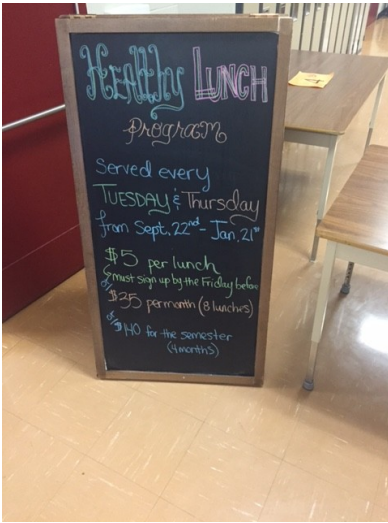 Healthy Lunch
Program
Served every
Tuesday & Thursday
from Sept. 22nd - Jan. 21st
$5 per lunch
must sign up by the Friday before
or $35 per month (8 lunches)
or $140 for the semester
(4 months)